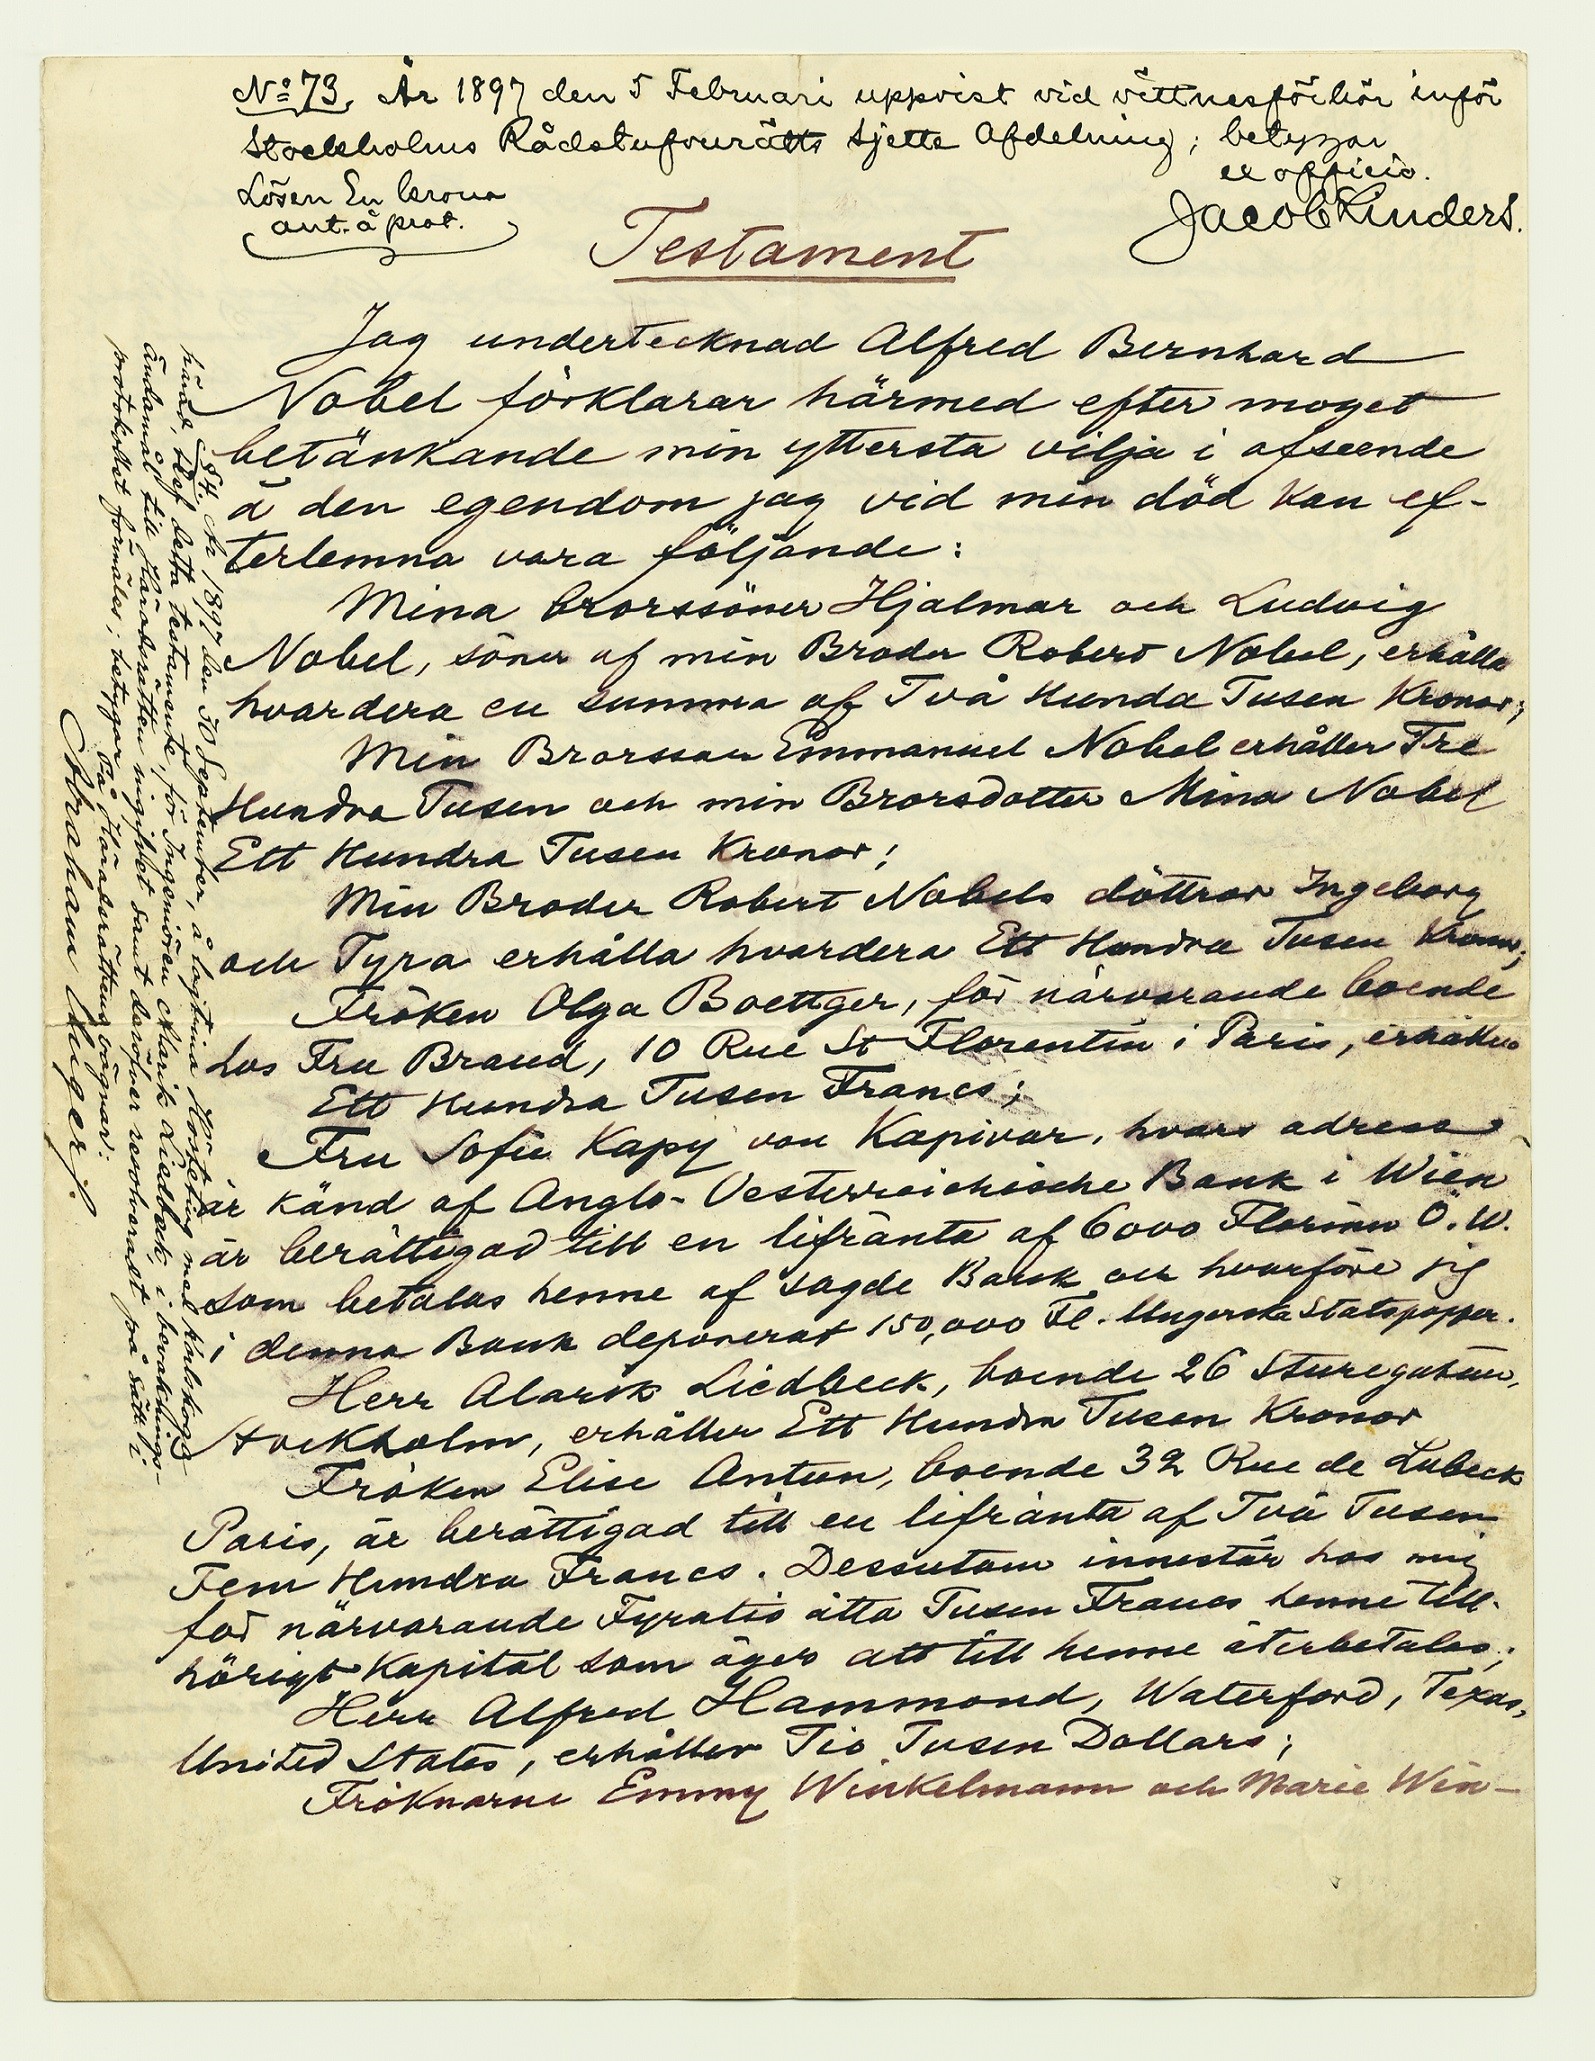 No 73, År 1897 den 5 Februari uppvist vid vittnesförhör inför
Stockholms Rådstufvurätts sjette Afdelning; betygar
ex officio.
Lösen En krona
ant. å prot.
Jacob Linders.
Testament
Jag undertecknad Alfred Bernhard
Nobel förklarar härmed efter moget
betänkande min yttersta vilja i afseende
å den egendom jag vid min död kan ef-
terlemna vara följande:
Mina brorssöner Hjalmar och Ludvig
Nobel, söner af min Broder Robert Nobel, erhålla
hvardera en summa af Två Hundra Tusen Kronor;
Min Brorsson Emmanuel Nobel erhåller Tre
Hundra Tusen och min Brorsdotter Mina Nobel
Ett Hundra Tusen Kronor;
Min Broder Robert Nobels döttrar Ingeborg
och Tyra erhålla hvardera Ett Hundra Tusen Kronor;
Fröken Olga Boettger, för närvarande boende
hos Fru Brand, 10 Rue St Florentin i Paris, erhåller
Ett Hundra Tusen Francs;
Fru Sofie Kapy von Kapivar, hvars adress
är känd af Anglo-Oesterreichische Bank i Wien
är berättigad till en lifränta af 6000 Florins Ö.W.
som betalas henne af sagde Bank och hvarföre jag
i denna Bank deponerat 150,000 Fl. Ungerska Statspapper.
Herr Alarik Liedbeck, boende 26 Sturegatan,
Stockholm, erhåller Ett Hundra Tusen Kronor
Fröken Elise Antun, boende 32 Rue de Lubeck
Paris, är berättigad till en lifränta af Två Tusen
Fem Hundra Francs. Dessutom innestår hos mig
för närvarande Fyratio åtta Tusen Francs henne till-
hörigt Kapital som äger att till henne återbetalas;
Herr Alfred Hammond, Waterford, Texas,
United States, erhåller Tio Tusen Dollars;
Fröknarne Emmy Winkelmann och Marie Win-
§ 4. År 1897 den 30 September, å lagtima Hösteting med Karlskoga
härad, blef detta testamente, för Ingeniören Alarik Liedbeck, i bevaknings-
ändamål till Häradsrätten ingifvet samt derefter
protokollet förmäles; betygar På Häradsrättens vägnar:
Abraham Unger